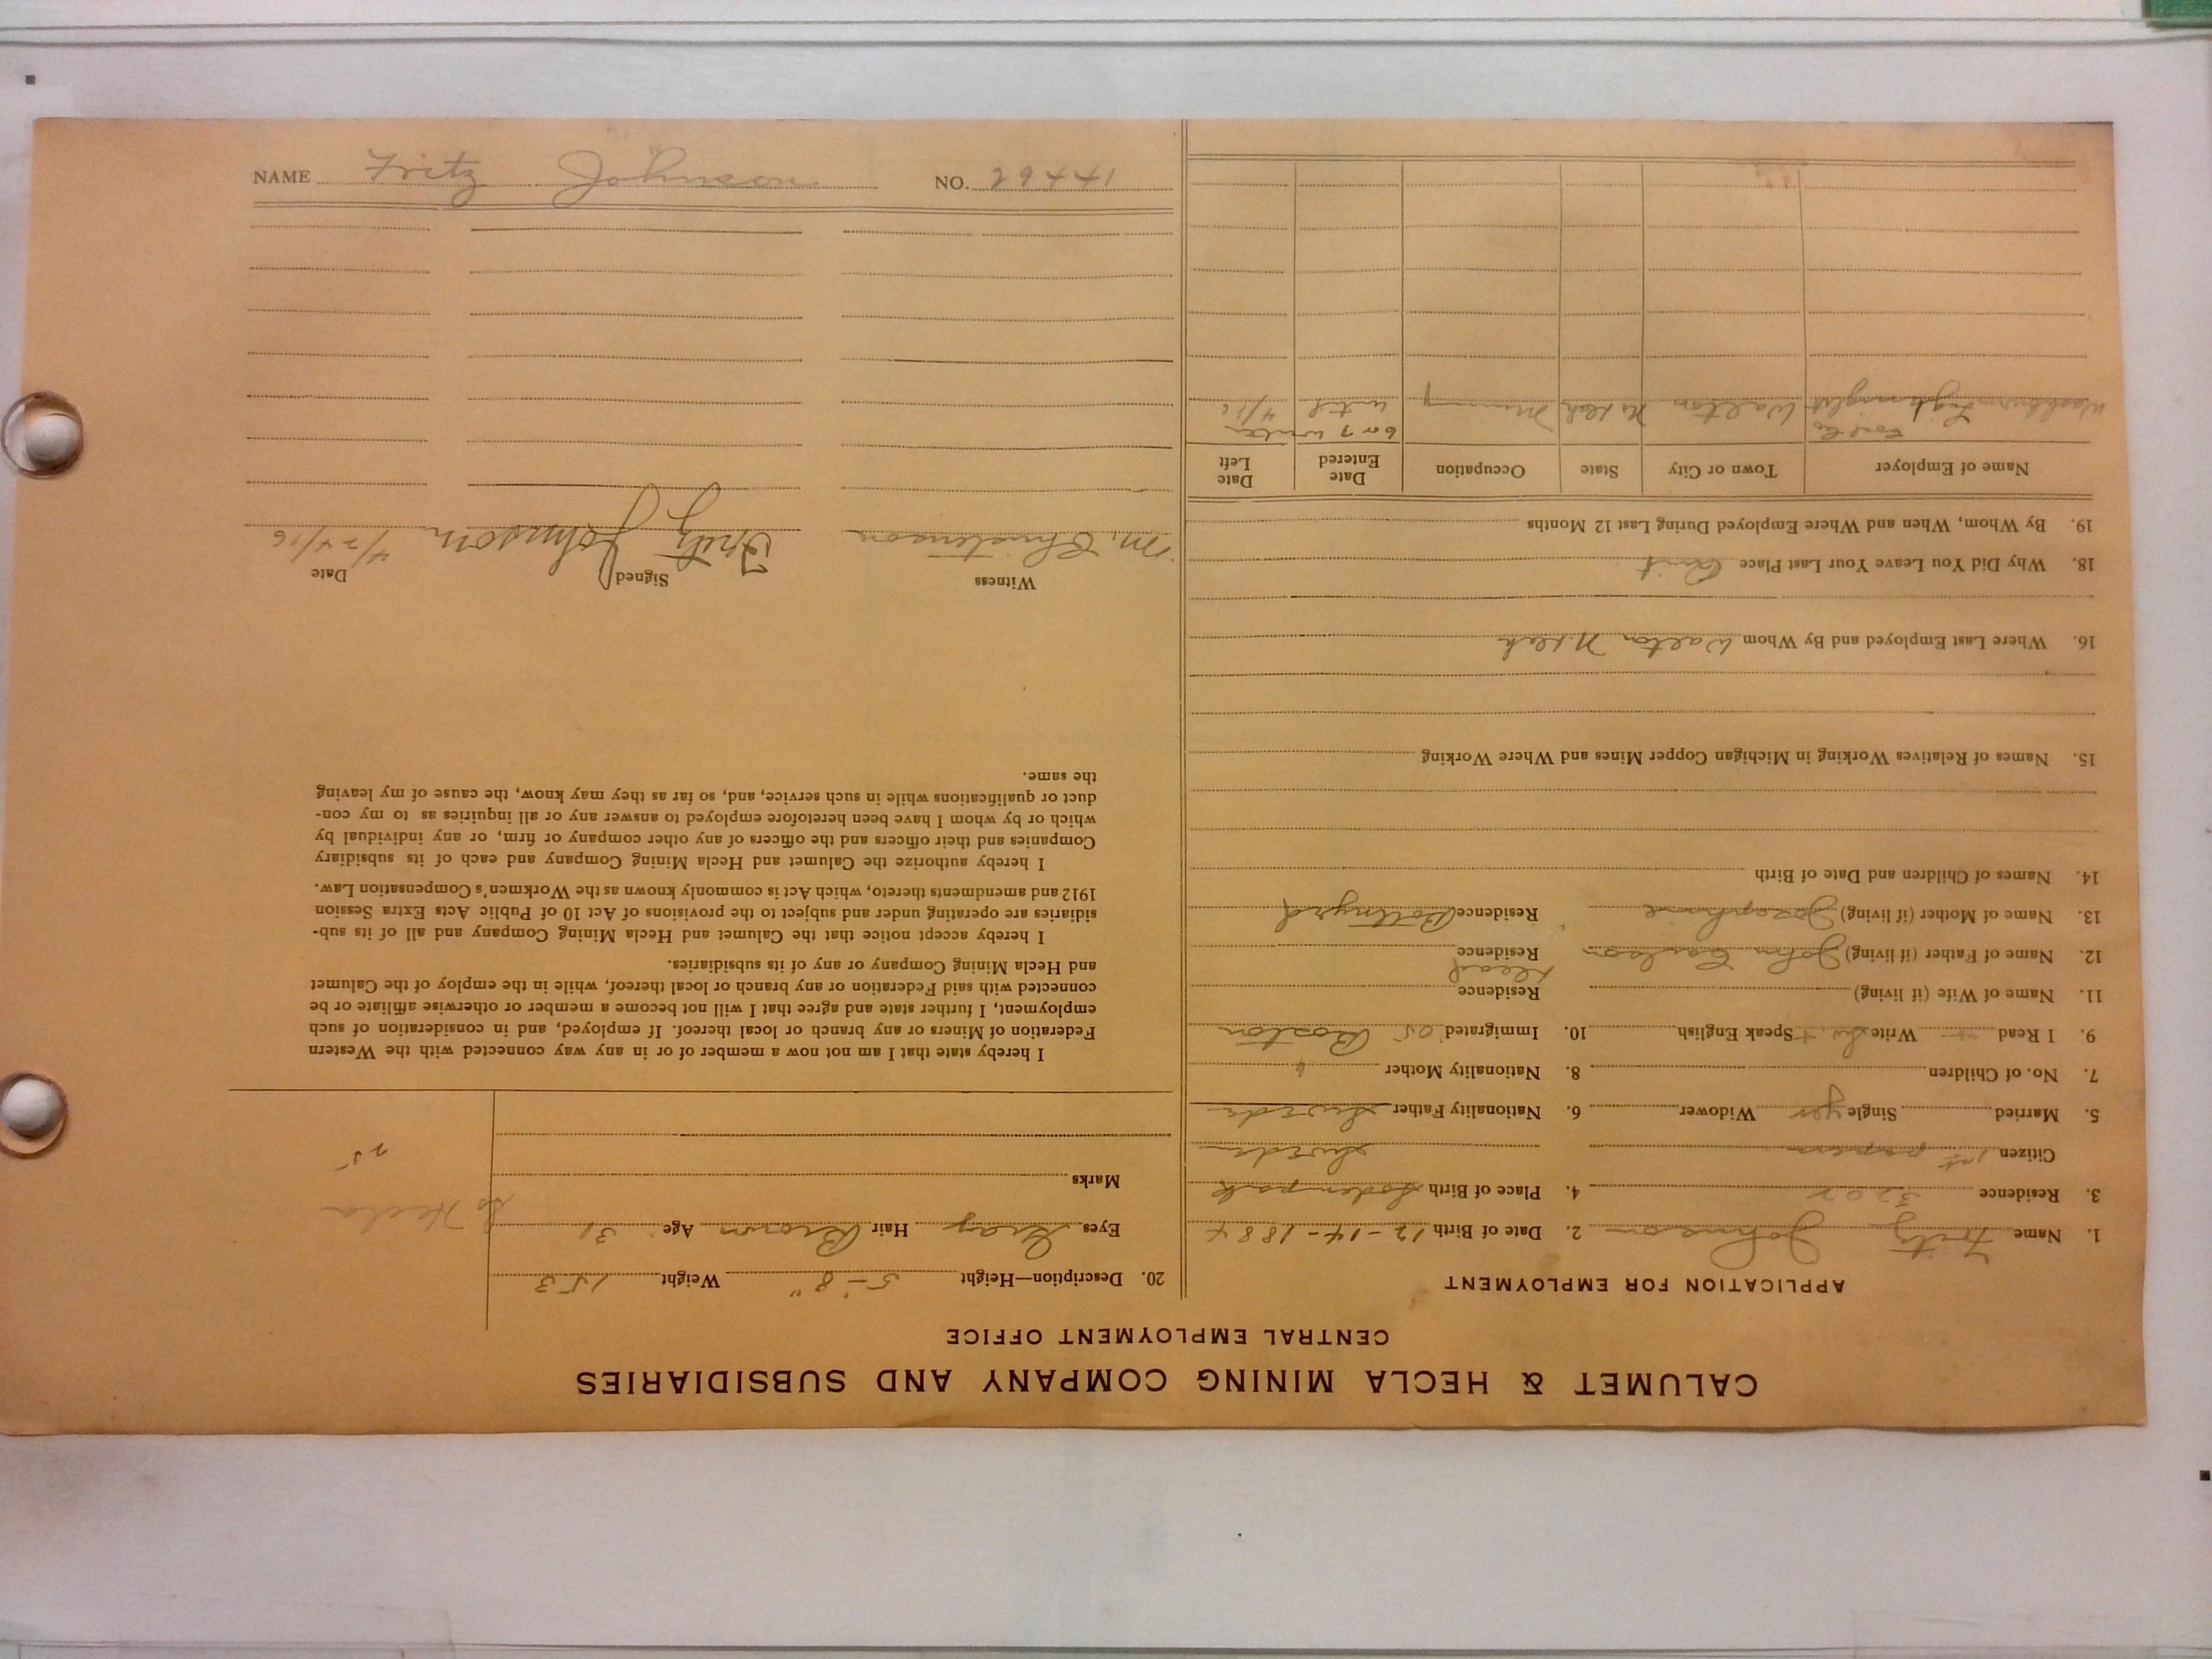 CALUMET & HECLA MINING COMPANY AND SUBSIDIARIES
CENTRAL EMPLOYMENT OFFICE
APPLICATION FOR EMPLOYMENT
1. Name Fritz Johnson 2. Date of Birth 12-14-1884
3. Residence 4. Place of Birth
Citizen 1st papers Sweden
5. Married Single yes Widower 6. Nationality Father Swede
7. No. of Children 8. Nationality Mother "
9. I Read Write Speak English 10. Immigrated '05 Boston
11. Name of Wife (if living) Residence
12. Name of Father (if living) John Carlson Residence dead
13. Name of Mother (if living) Josephine Residence
14. Names of Children and Date of Birth
15. Names of Relatives Working in Michigan Copper Mines and Where Working
16. Where Last Employed and By Whom Walton
18. Why Did You Leave Your Last Place Quit
19. By Whom, When and Where Employed During Last 12 Months
Name of Employer Town or City State Occupation Date Entered Date Left
Coal Co 6 or 7 winters
Washburn Walton until 4/16
20. Description—Height 5-'8" Weight 153
Eyes Gray Hair Brown Age 31
Marks
So Hecla
25
I hereby state that I am not now a member of or in any way connected with the Western
Federation of Miners or any branch or local thereof. If employed, and in consideration of such
employment, I further state and agree that I will not become a member or otherwise affiliate or be
connected with said Federation or any branch or local thereof, while in the employ of the Calumet
and Hecla Mining Company or any of its subsidiaries.
I hereby accept notice that the Calumet and Hecla Mining Company and all of its sub-
sidiaries are operating under and subject to the provisions of Act 10 of Public Acts Extra Session
1912 and amendments thereto, which Act is commonly known as the Workmen's Compensation Law.
I hereby authorize the Calumet and Hecla Mining Company and each of its subsidiary
Companies and their officers and the officers of any other company or firm, or any individual by
which or by whom I have been heretofore employed to answer any or all inquiries as to my con-
duct or qualifications while in such service, and, so far as they may know, the cause of my leaving
the same.
Witness Signed Date
M. Christenson Fritz Johnson 4/24/16
NAME Fritz Johnson NO. 29441